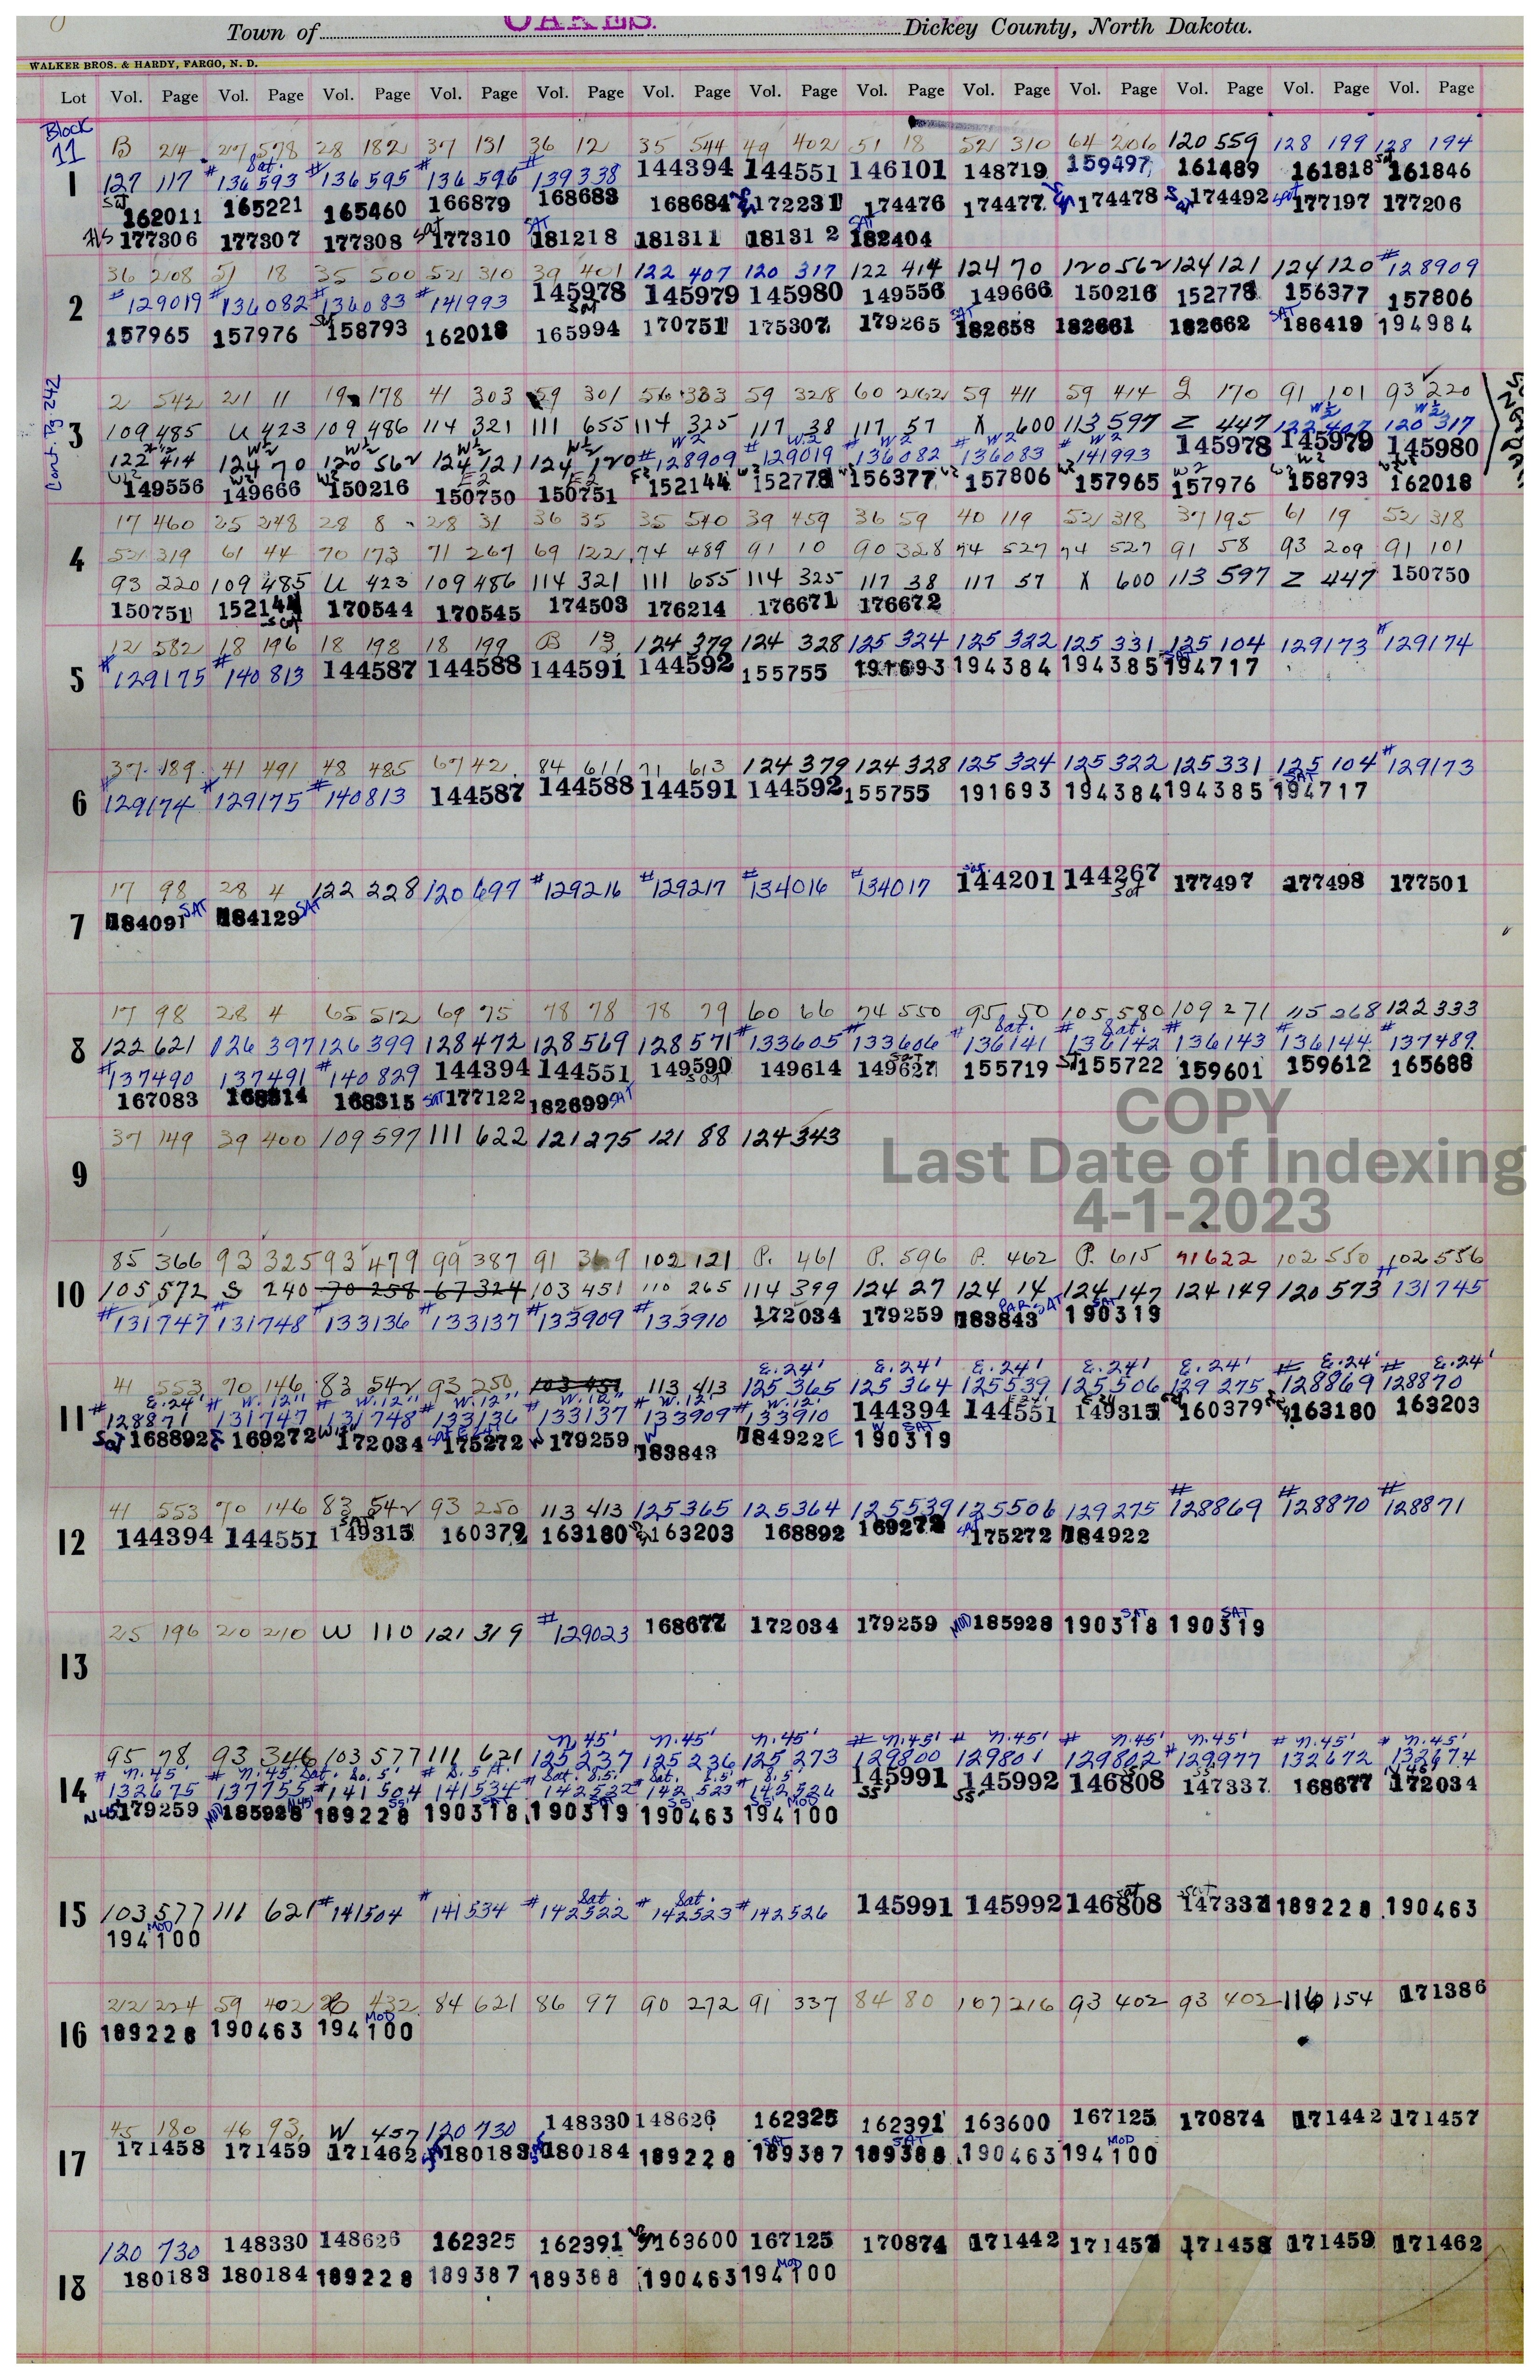 Town of OAKES. Dickey County, North Dakota.
WALKER BROS. & HARDY, FARGO, N. D.
Lot Vol. Page Vol. Page Vol. Page Vol. Page Vol. Page Vol. Page Vol. Page Vol. Page Vol. Page Vol. Page Vol. Page Vol. Page Vol. Page
Block 11
B 214 27 578 28 182 37 131 36 12 35 544 49 402 51 18 52 310 64 206 120 559 128 199 128 194
1 127 117 #136593 Sat. #136595 #136596 #139338 144394 144551 146101 148719 159497 161489 161818 Sat 161846
Sat 162011 165221 165460 166879 168683 168684 172231 174476 174477 174478 174492 Sat 177197 177206
177306 177307 177308 Sat 177310 SAT 181218 181311 181312 SAT 182404
36 208 51 18 35 500 52 310 39 401 122 407 120 317 122 414 124 70 120 562 124 121 124 120 #128909
2 #129019 #136082 #136083 #141993 145978 145979 145980 149556 149666 150216 152778 156377 157806
157965 157976 158793 162018 165994 170751 175307 179265 SAT 182658 182661 182662 SAT 186419 194984
Cont. Pg 242
2 542 21 11 19 178 41 303 59 301 56 383 59 328 60 262 59 411 59 414 2 170 91 101 93 220
3 109 485 U 423 109 486 114 321 111 655 114 325 117 38 117 57 X 600 113 597 Z 447 W½ 122 407 W½ 120 317
122 414 W½ 124 70 W½ 120 562 W½ 124 121 W½ 124 120 W½ #128909 W2 #129019 W2 #136082 W2 #136083 W2 #141993 W2 145978 145979 145980
149556 149666 150216 150750 150751 152144 152778 156377 157806 157965 157976 158793 162018
17 460 25 248 28 8 28 31 36 35 35 540 39 459 36 59 40 119 52 318 37 195 61 19 52 318
4 52 319 61 44 70 173 71 267 69 122 74 489 91 10 90 328 74 527 74 527 91 58 93 209 91 101
93 220 109 485 U 423 109 486 114 321 111 655 114 325 117 38 117 57 X 600 113 597 Z 447 150750
150751 152144 170544 170545 174503 176214 176671 176672
12 582 18 196 18 198 18 199 B 13 124 379 124 328 125 324 125 322 125 331 125 104 129173 #129174
5 #129175 #140813 144587 144588 144591 144592 155755 191693 194384 194385 SAT 194717
37 189 41 491 48 485 67 42 84 611 71 613 124 379 124 328 125 324 125 322 125 331 125 104 #129173
6 #129174 #129175 #140813 144587 144588 144591 144592 155755 191693 194384 194385 SAT 194717
17 98 28 4 122 228 120 697 #129216 #129217 #134016 #134017 Sat. 144201 144267 Sat 177497 177498 177501
7 184091 SAT 184129 SAT
17 98 28 4 65 512 69 75 78 78 78 79 60 66 74 550 95 50 105 580 109 271 115 268 122 333
8 122 621 126 397 126 399 128 472 128 569 128 571 #133605 #133606 Sat. #136141 Sat. #136142 #136143 #136144 #137489
#137490 137491 #140829 144394 144551 149590 149614 149627 155719 155722 159601 159612 165688
167083 168314 168315 SAT 177122 182699 SAT
COPY
37 149 39 400 109 597 111 622 121 275 121 88 124 343
Last Date of Indexing
9
4-1-2023
85 366 93 325 93 479 99 387 91 369 102 121 P. 461 P. 596 P. 462 P. 615 91 622 102 550 102 556
10 105 572 S 240 70 258 67 324 103 451 110 265 114 399 124 27 124 14 124 147 124 149 120 573 #131745
#131747 131748 #133136 #133137 #133909 #133910 172034 179259 183843 PAR SAT 190319 SAT
E.24' E.24' E.24' E.24' E.24' E.24' E.24'
41 553 70 146 83 542 93 250 103 451 113 413 125 365 125 364 125 539 125 506 129 275 #128869 #128870
11 E.24' #128871 W.12' #131747 W.12" #131748 W.12" #133136 W.12" #133137 W.12' #133909 W.12' #133910 144394 144551 149315 160379 163180 163203
Sat 168892 169272 172034 175272 179259 W 183843 184922 E 190319 W SAT
41 553 70 146 83 542 93 250 113 413 125 365 125 364 125 539 125 506 129 275 #128869 #128870 #128871
12 144394 144551 SAT 149315 160379 163180 163203 168892 169272 175272 184922
25 196 20 210 W 110 121 319 #129023 168677 172034 179259 MOD 185928 190318 SAT 190319 SAT
13
n 45' n.45' n.45' # n.45' # n.45' # n.45' n.45' # n.45' # n.45'
95 78 93 346 103 577 111 621 125 237 125 236 125 273 129800 129801 129802 #129977 132672 132674
14 # n.45' 132675 # n.45' 137755 Sat. So. 5' #141504 # S.5 ft. 141534 # Sat. S.5' 142522 # Sat. S.5' 142523 # S.5' 142526 145991 145992 146808 147337 168677 172034
N45' 179259 MOD 185928 N45' 189228 190318 SAT 190319 SAT 190463 S5' 194100 S5' MOD
15 103 577 111 621 #141504 #141534 Sat. #142522 Sat. #142523 #142526 145991 145992 146808 Sat 147337 189228 190463
194100 MOD
212 224 59 402 26 432 84 621 86 97 90 272 91 337 84 80 107 216 93 402 93 402 116 154 171386
16 189228 190463 194100 MOD
45 180 46 93 W 457 120 730 148330 148626 162325 162391 163600 167125 170874 171442 171457
17 171458 171459 171462 180183 180184 189228 SAT 189387 SAT 189388 190463 194100 MOD
120 730 148330 148626 162325 162391 163600 167125 170874 171442 171457 171458 171459 171462
18 180183 180184 189228 189387 189388 190463 194100 MOD